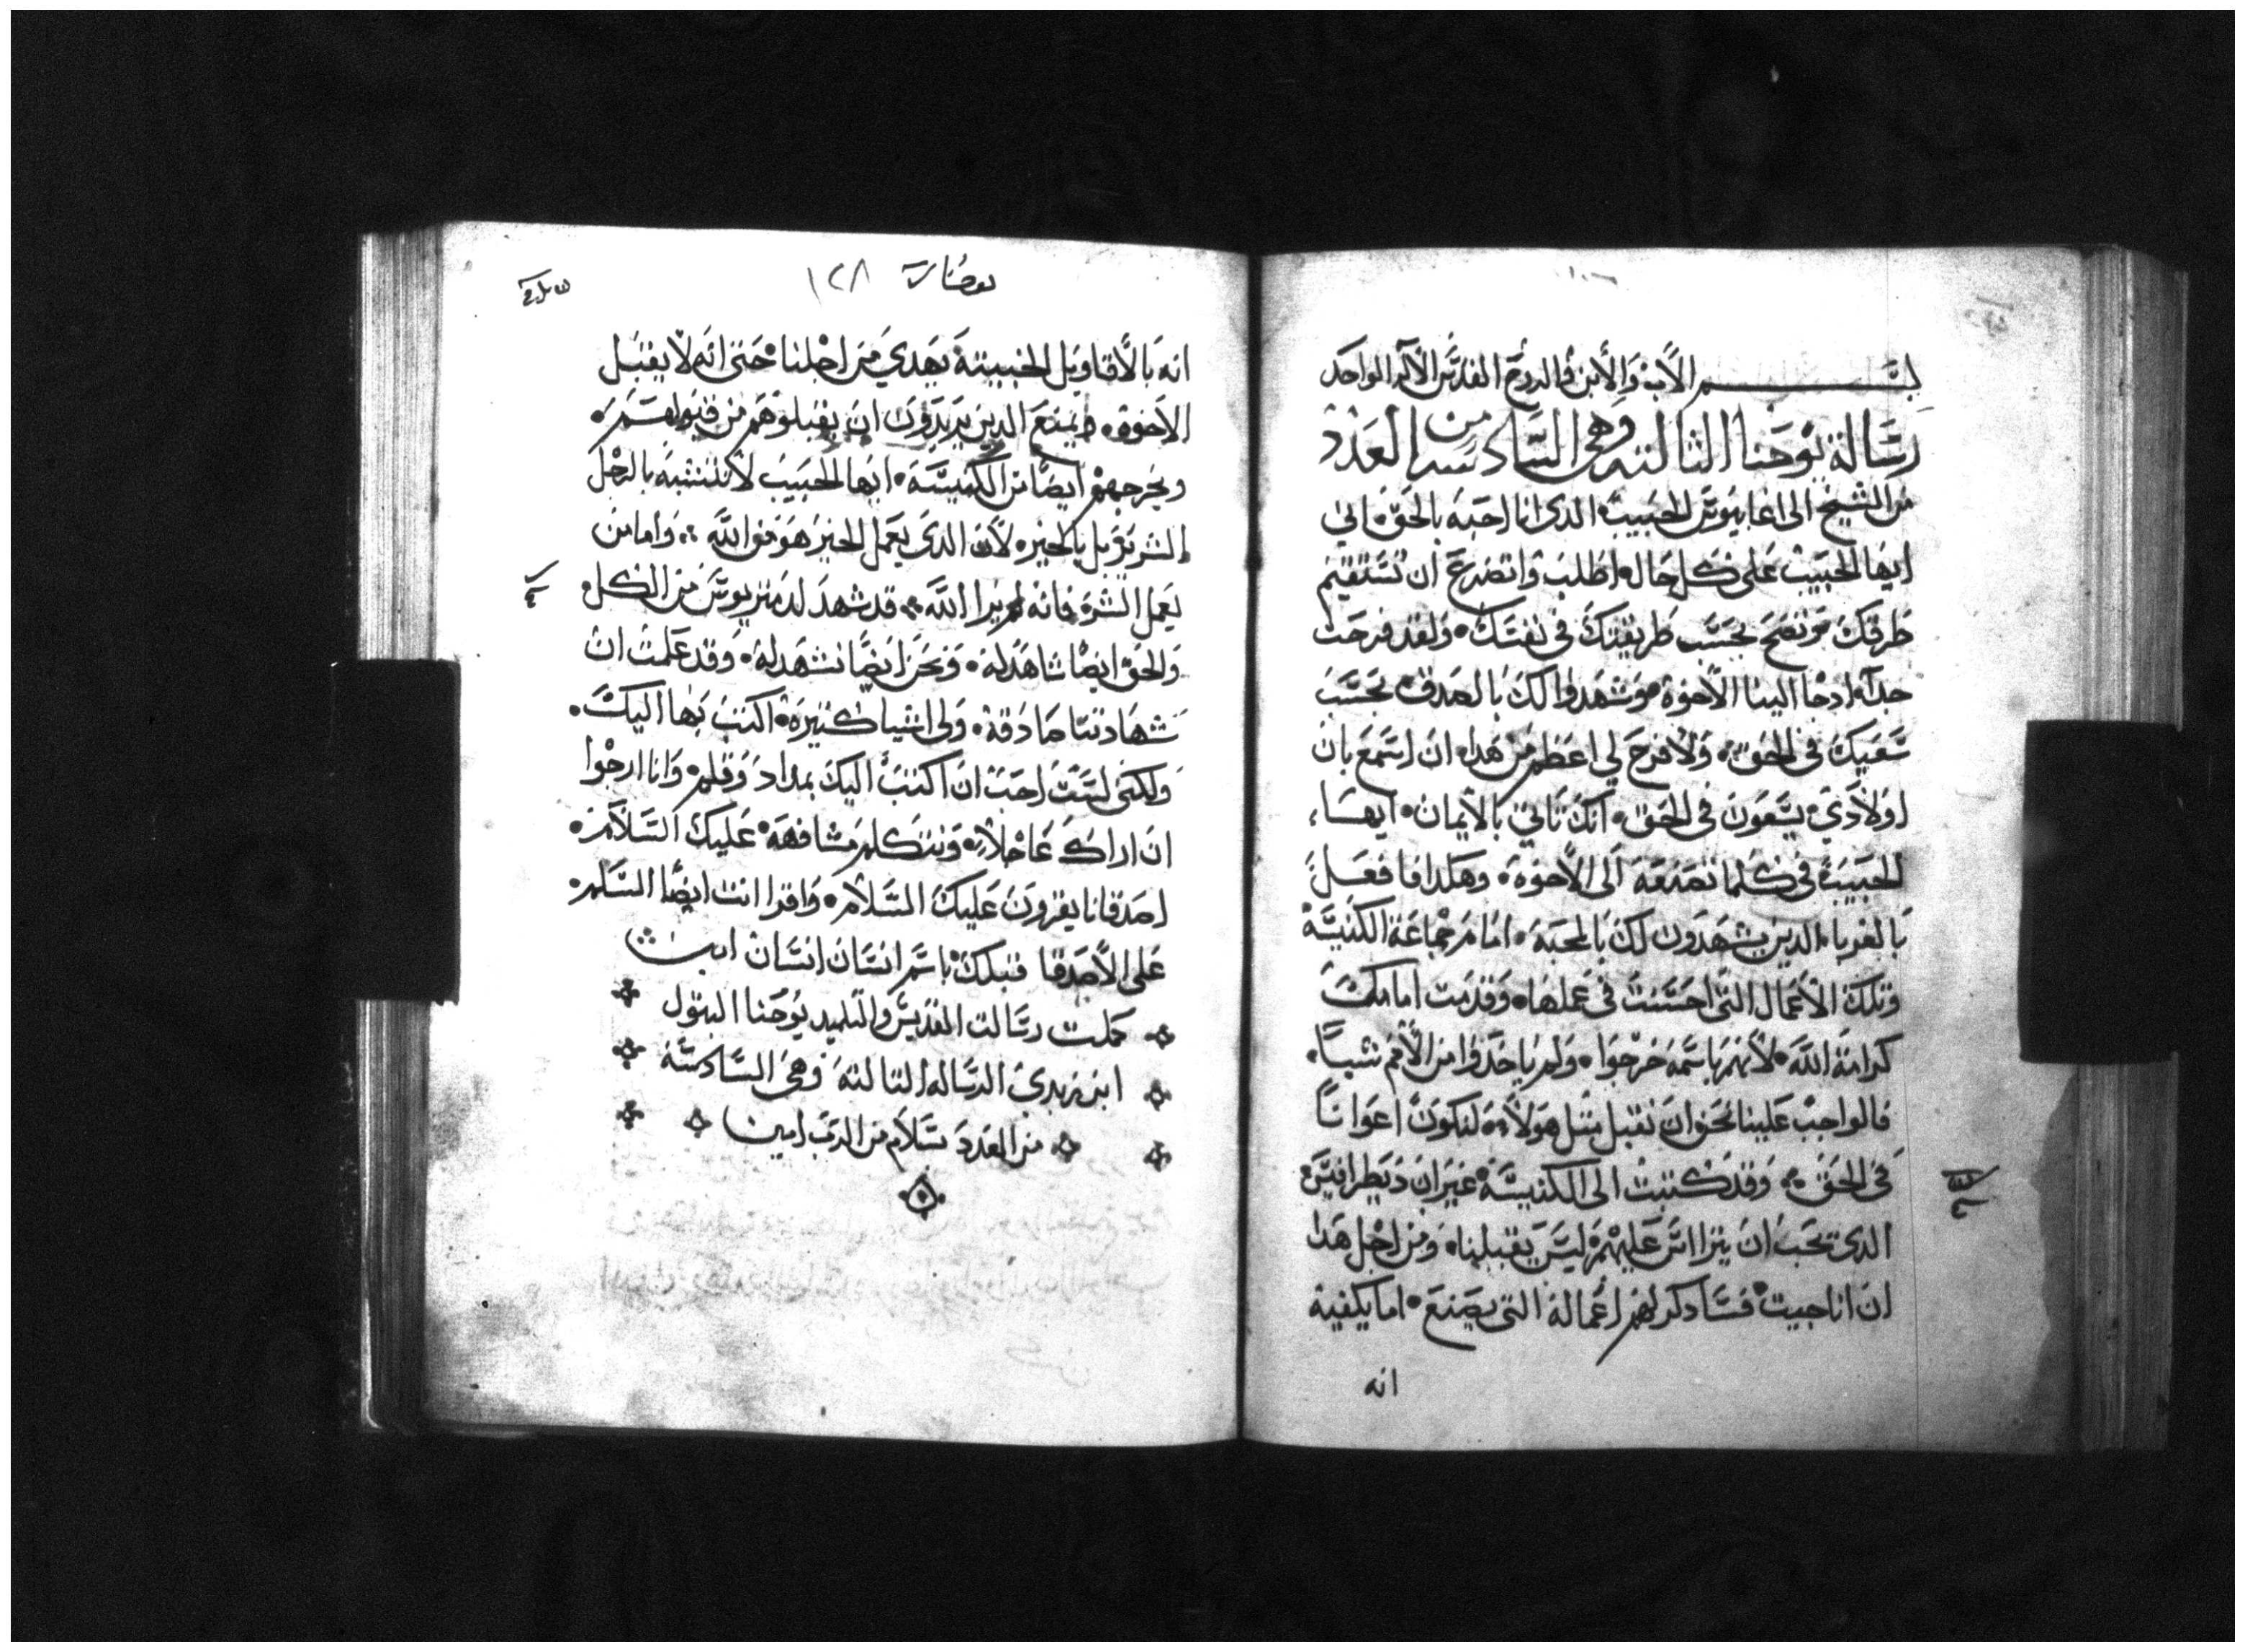 بسم الاب والابن والروح القدس الاله الواحد
رسالة يوحنا الثالثه وهي السادسه من العدد
من الشيخ الى اغايوس الحبيب الدى انا احبه بالحق اني
ايها الحبيب على كل حال اطلب واتضرع ان تستقيم
طرقك وتصح بحسب طريقتك في نفسك ولقد فرحت
جدا اد جا الينا الاخوة وشهدوا لك بالصدق بحسب
سعيك في الحق ولا فرح لي اعظم من هدا ان اسمع بان
اولادي يسعون في الحق انك تاتي بالايمان ايها
الحبيب في كلما تصنعه الى الاخوة وهكدا فافعل
بالغربا الدين يشهدون لك بالمحبة امام جماعة الكنيسة
وتلك الاعمال التي احسنت في عملها وقدمت امامك
كرامة الله لانهم باسمه خرجوا ولم ياخدوا من الامم شيا
فالواجب علينا نحن ان نقبل مثل هولا لنكون اعوانا
في الحق وقد كتبت الى الكنيسة غير ان ديطرافيس
الدى يحب ان يتراس عليهم ليس يقبلنا ومن اجل هدا
ان انا جيت فسادكر لهم اعماله التي يصنع اما يكفية
انه
١٢٨
انه بالاقاويل الخبيثة يهدي من اجلنا حتى انه لا يقبل
الاخوة ويمنع الدين يريدون ان يقبلوهم من قبولهم
ويخرجهم ايضا من الكنيسة ايها الحبيب لا تتشبه بالرجل
الشرير بل بالخير لان الدى يعمل الخير هو من الله واما من
يعمل الشر فانه لم يرا الله قد شهد لدمتريوس من الكل
والحق ايضا شاهد له ونحن ايضا نشهد له وقد علمت ان
شهادتنا صادقة ولى اشيا كثيرة اكتب بها اليك
ولكنى لست احب ان اكتب اليك بمداد وقلم وانا ارجوا
ان اراك عاجلا ونتكلم مشافهة عليك السلام
اصدقانا يقرون عليك السلام واقرا انت ايضا السلم
على الاصدقا قبلك باسم انسان انسان امين
كملت رسالت القديس والتلميد يوحنا البتول
ابن زبدي الرساله الثالثه وهي السادسة
من العدد سلام من الرب امين